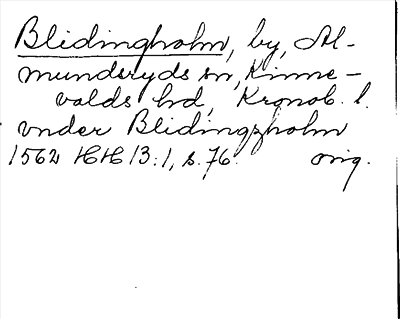 Blidingholm, by, Al-
mundsryds sn, Kinne-
valds hd, Kronob. l.
vnder Blidingzholm
1562 HH 13:1, s. 76. orig.